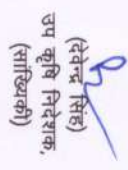 (देवेन्द्र सिंह)
उप कृषि निदेशक,
(सांख्यिकी)